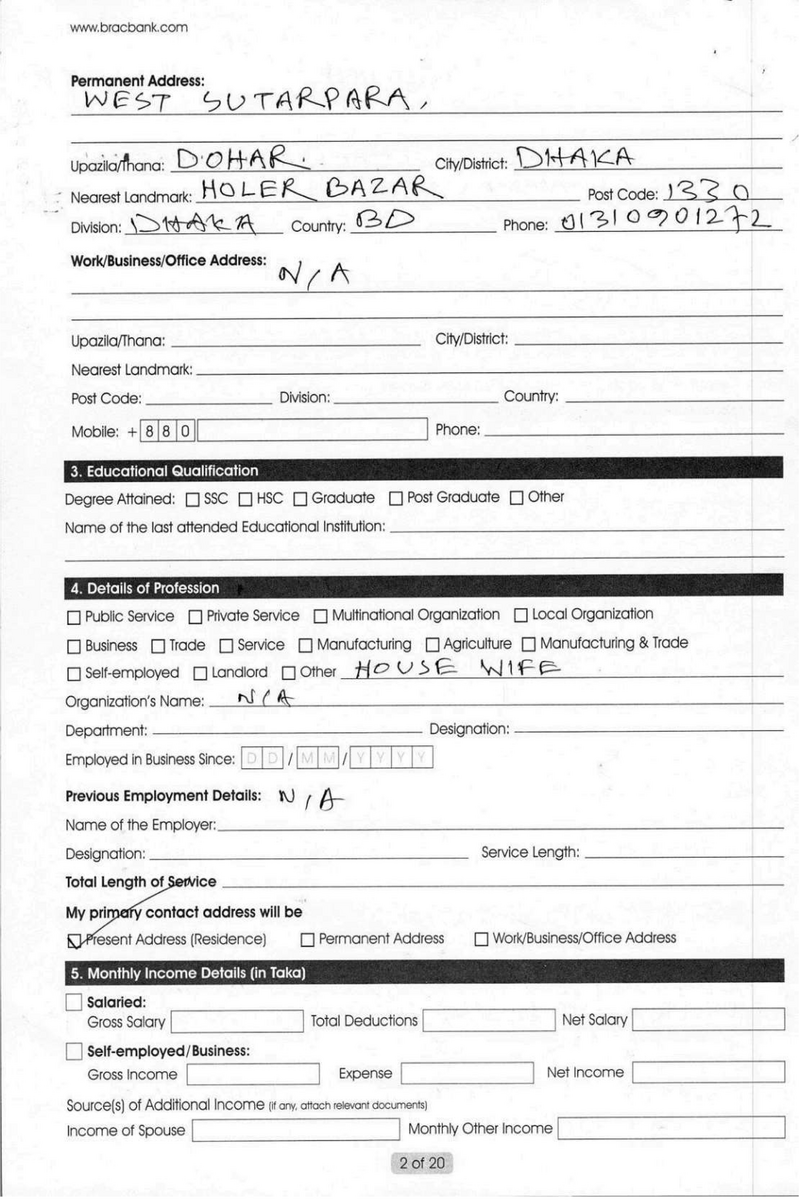 www.bracbank.com
Permanent Address:
WEST SUTARPARA,
Upazila/Thana: DOHAR. City/District: DHAKA
Nearest Landmark: HOLER BAZAR Post Code: 1330
Division: DHAKA Country: BD Phone: 01310901272
Work/Business/Office Address:
N/A
Upazila/Thana: City/District:
Nearest Landmark:
Post Code: Division: Country:
Mobile: + 8 8 0 Phone:
3. Educational Qualification
Degree Attained: SSC HSC Graduate Post Graduate Other
Name of the last attended Educational Institution:
4. Details of Profession
Public Service Private Service Multinational Organization Local Organization
Business Trade Service Manufacturing Agriculture Manufacturing & Trade
Self-employed Landlord Other HOUSE WIFE
Organization's Name: N/A
Department: Designation:
Employed in Business Since: D D / M M / Y Y Y Y
Previous Employment Details: N/A
Name of the Employer:
Designation: Service Length:
Total Length of Service
My primary contact address will be
Present Address (Residence) Permanent Address Work/Business/Office Address
5. Monthly Income Details (in Taka)
Salaried:
Gross Salary Total Deductions Net Salary
Self-employed/Business:
Gross Income Expense Net Income
Source(s) of Additional Income (if any, attach relevant documents)
Income of Spouse Monthly Other Income
2 of 20